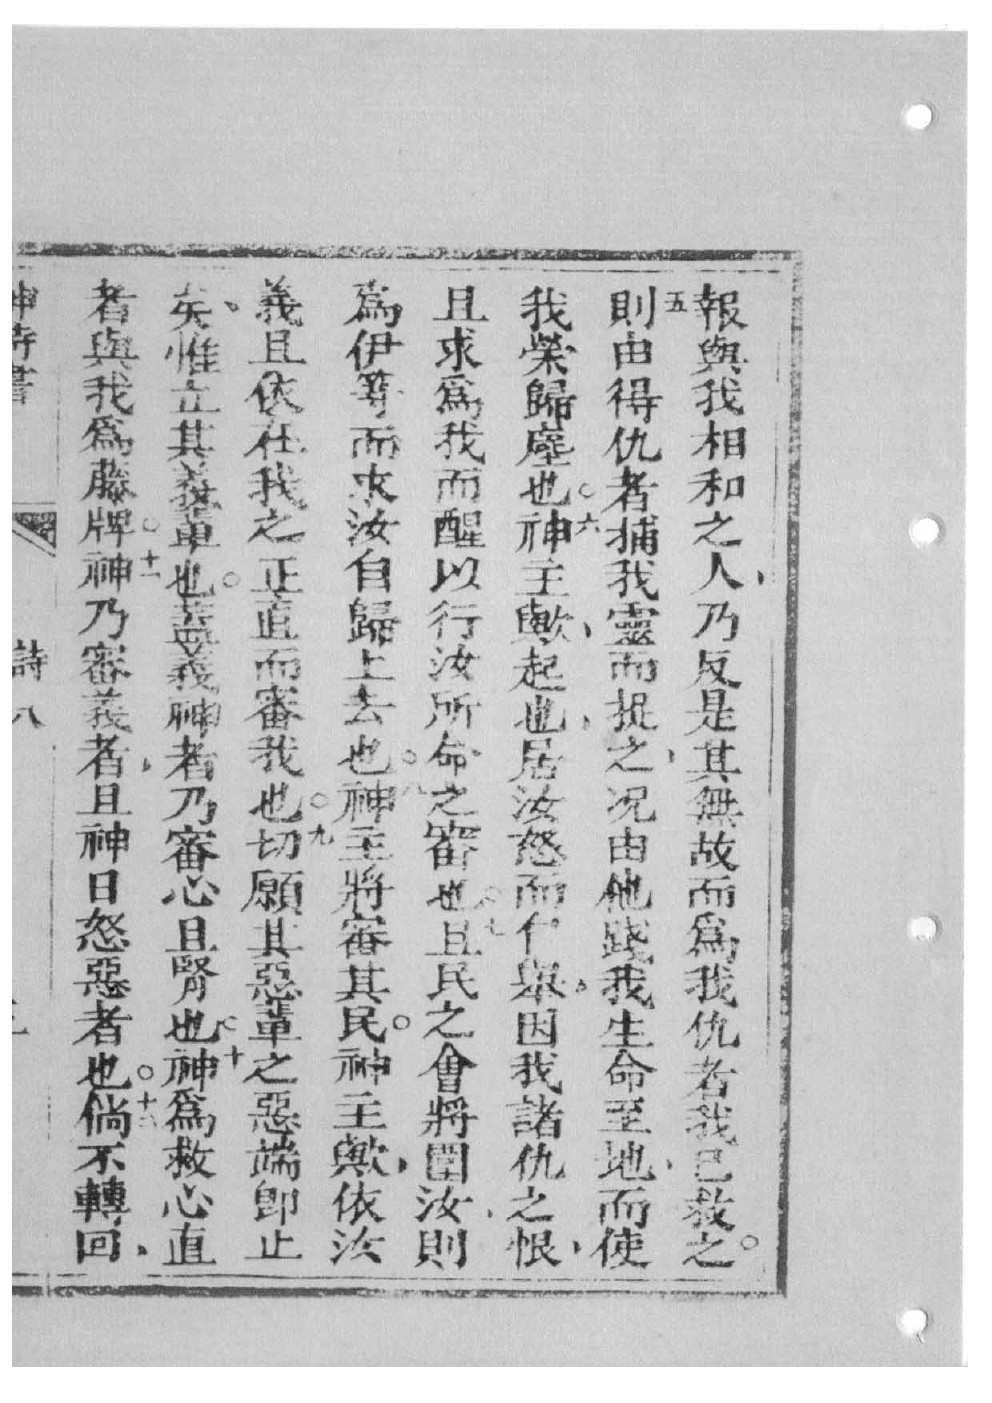 報與我相和之人、乃反是其無故而爲我仇者我已救之。
五則由得仇者捕我靈而捉之、况由他踐我生命至地、而使
我榮歸塵也。六神主歟、起也、居汝怒而仁舉、因我諸仇之恨、
且求爲我而醒以行汝所命之審也。七且民之會將圍汝、則
爲伊等而求汝自歸上去也。八神主將審其民。神主歟、依汝
義且依在我之正直而審我也。九切願其惡輩之惡端卽止
矣、惟立其義輩也。蓋義神者乃審心且腎也。十神爲救心直
者與我爲籐牌。十一神乃審義者、且神日怒惡者也。十二倘不轉回、
神詩書 詩 八